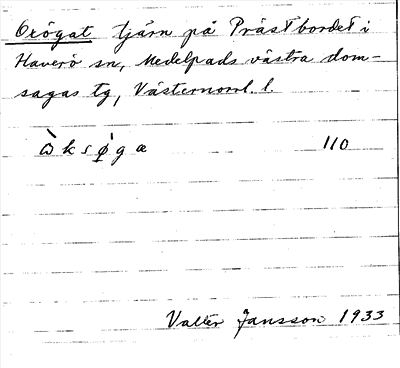 Oxögat tjärn på Prästbordet i
Haverö sn, Medelpads västra dom-
sagas tg, Västernorrl. l.
ὼksø̀gæ 110
Valter Jansson 1933